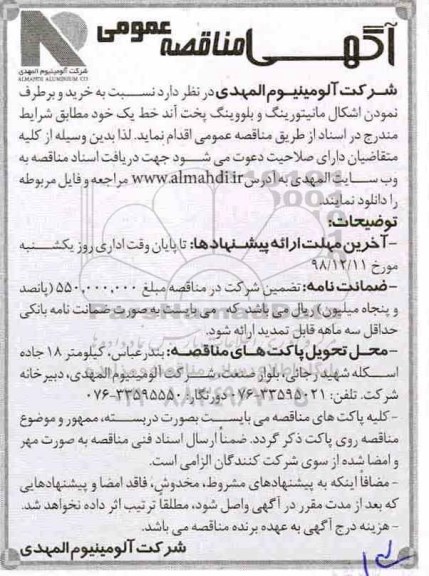 آگهی مناقصه عمومی
شرکت آلومینیوم المهدی
ALMAHDI ALUMINIUM CO
شرکت آلومینیوم المهدی در نظر دارد نسبت به خرید و برطرف
نمودن اشکال مانیتورینگ و بلووینگ پخت آند خط یک خود مطابق شرایط
مندرج در اسناد از طریق مناقصه عمومی اقدام نماید. لذا بدین وسیله از کلیه
متقاضیان دارای صلاحیت دعوت می شود جهت دریافت اسناد مناقصه به
وب سایت المهدی به آدرس www.almahdi.ir مراجعه و فایل مربوطه
را دانلود نمایند.
توضیحات:
-آخرین مهلت ارائه پیشنهادها: تا پایان وقت اداری روز یکشنبه
مورخ ۹۸/۱۲/۱۱
-ضمانت نامه: تضمین شرکت در مناقصه مبلغ ۵۵۰,۰۰۰,۰۰۰ (پانصد
و پنجاه میلیون) ریال می باشد که می بایست به صورت ضمانت نامه بانکی
حداقل سه ماهه قابل تمدید ارائه شود.
-محل تحویل پاکت های مناقصه: بندرعباس، کیلومتر ۱۸ جاده
اسکله شهید رجائی، بلوار صنعت، شرکت آلومینیوم المهدی، دبیرخانه
شرکت. تلفن: ۳۳۵۹۵۰۲۱-۰۷۶ دورنگار: ۳۳۵۹۵۵۵۰-۰۷۶
- کلیه پاکت های مناقصه می بایست بصورت دربسته، ممهور و موضوع
مناقصه روی پاکت ذکر گردد. ضمناً ارسال اسناد فنی مناقصه به صورت مهر
و امضا شده از سوی شرکت کنندگان الزامی است.
- مضافاً اینکه به پیشنهادهای مشروط، مخدوش، فاقد امضا و پیشنهادهایی
که بعد از مدت مقرر در آگهی واصل شود، مطلقاً ترتیب اثر داده نخواهد شد.
- هزینه درج آگهی به عهده برنده مناقصه می باشد.
شرکت آلومینیوم المهدی